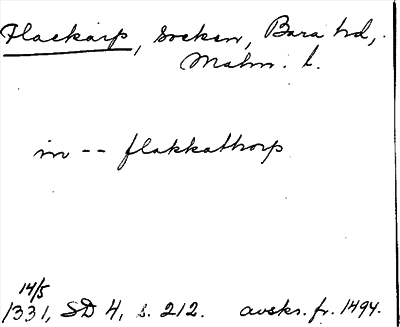 Flackarp, socken, Bara hd,
Malm. l.
in -- flakkathorp
14/5
1331, SD 4, s. 212. avskr. fr. 1494.